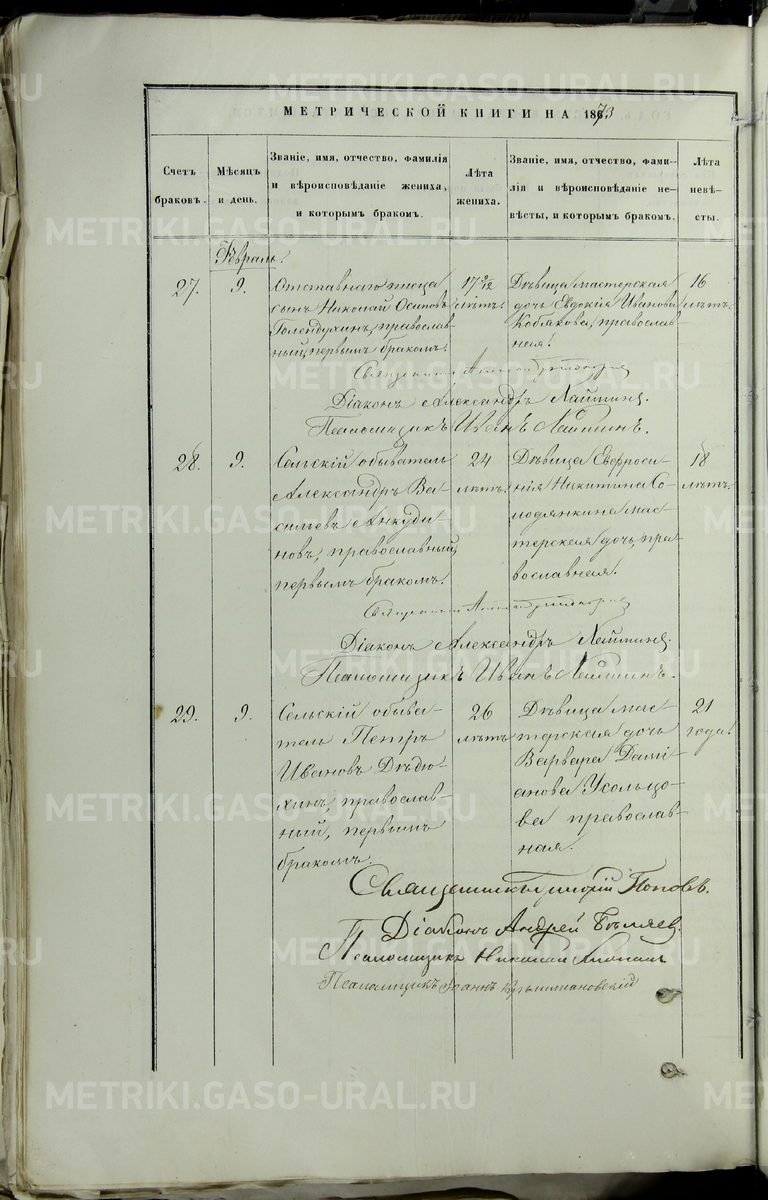 МЕТРИЧЕСКОЙ КНИГИ НА 1873
Счетъ браковъ.
Мѣсяцъ и день.
Званіе, имя, отчество, фамилія и вѣроисповѣданіе жениха, и которымъ бракомъ.
Лѣта жениха.
Званіе, имя, отчество, фами-
лія и вѣроисповѣданіе не-
вѣсты, и которымъ бракомъ.
Лѣта невѣ-
сты.
Февраль.
27.
9.
Отставнаго писца
сынъ Николай Осиповъ
Голендухинъ, православ-
ный, первымъ бракомъ.
17 9/12
лѣтъ.
Дѣвица мастерская
дочь Евдокія Иванова
Кобякова, православ-
ная.
16
лѣтъ.
Священникъ
Діаконъ Александръ
Псаломщикъ Иванъ
28.
9.
Сельскій обыватель
Александръ Ва-
сильевъ Анкуди-
новъ, православный,
первымъ бракомъ.
24
лѣтъ.
Дѣвица Евфроси-
нія Никитина Со-
лодянкина мас-
терская дочь, пра-
вославная.
18
лѣтъ.
Священникъ
Діаконъ Александръ
Псаломщикъ Иванъ
29.
9.
Сельскій обыва-
тель Петръ
Ивановъ Дѣдю-
хинъ, православ-
ный, первымъ
бракомъ.
26
лѣтъ
Дѣвица мас-
терская дочь
Варвара Дамі-
анова Усольцо-
ва православ-
ная.
21
года.
Священникъ Григорій Поповъ.
Діаконъ Андрей Бѣляев.
Псаломщикъ Николай
Псаломщикъ Іоаннъ
METRIKI.GASO-URAL.RU